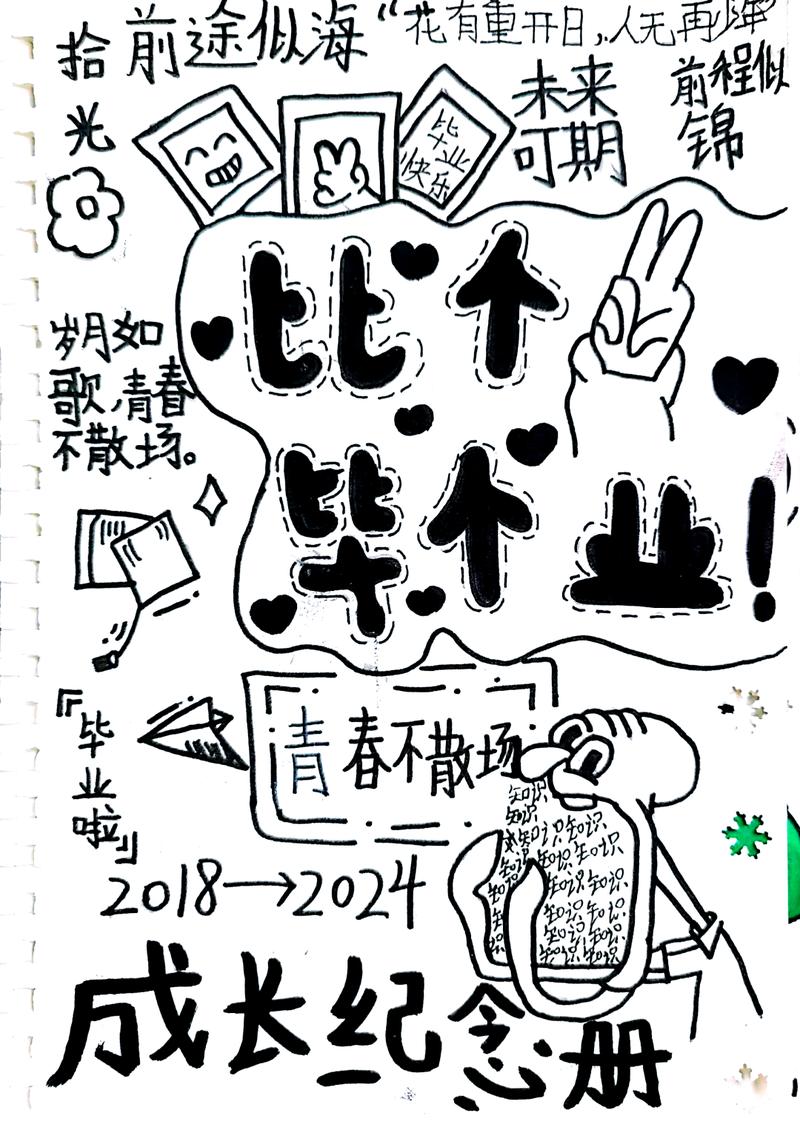 拾光
前途似海
“花有重开日，人无再少年”
未来
可期
前程似
锦
毕业
快乐
比个
毕个业！
岁月如
歌，青春
不散场。
『毕业啦』
青春不散场
知识
知识
知识知识
知识知识
知识知识
知识知识
知识知识
知识知识
2018→2024
成长纪念册